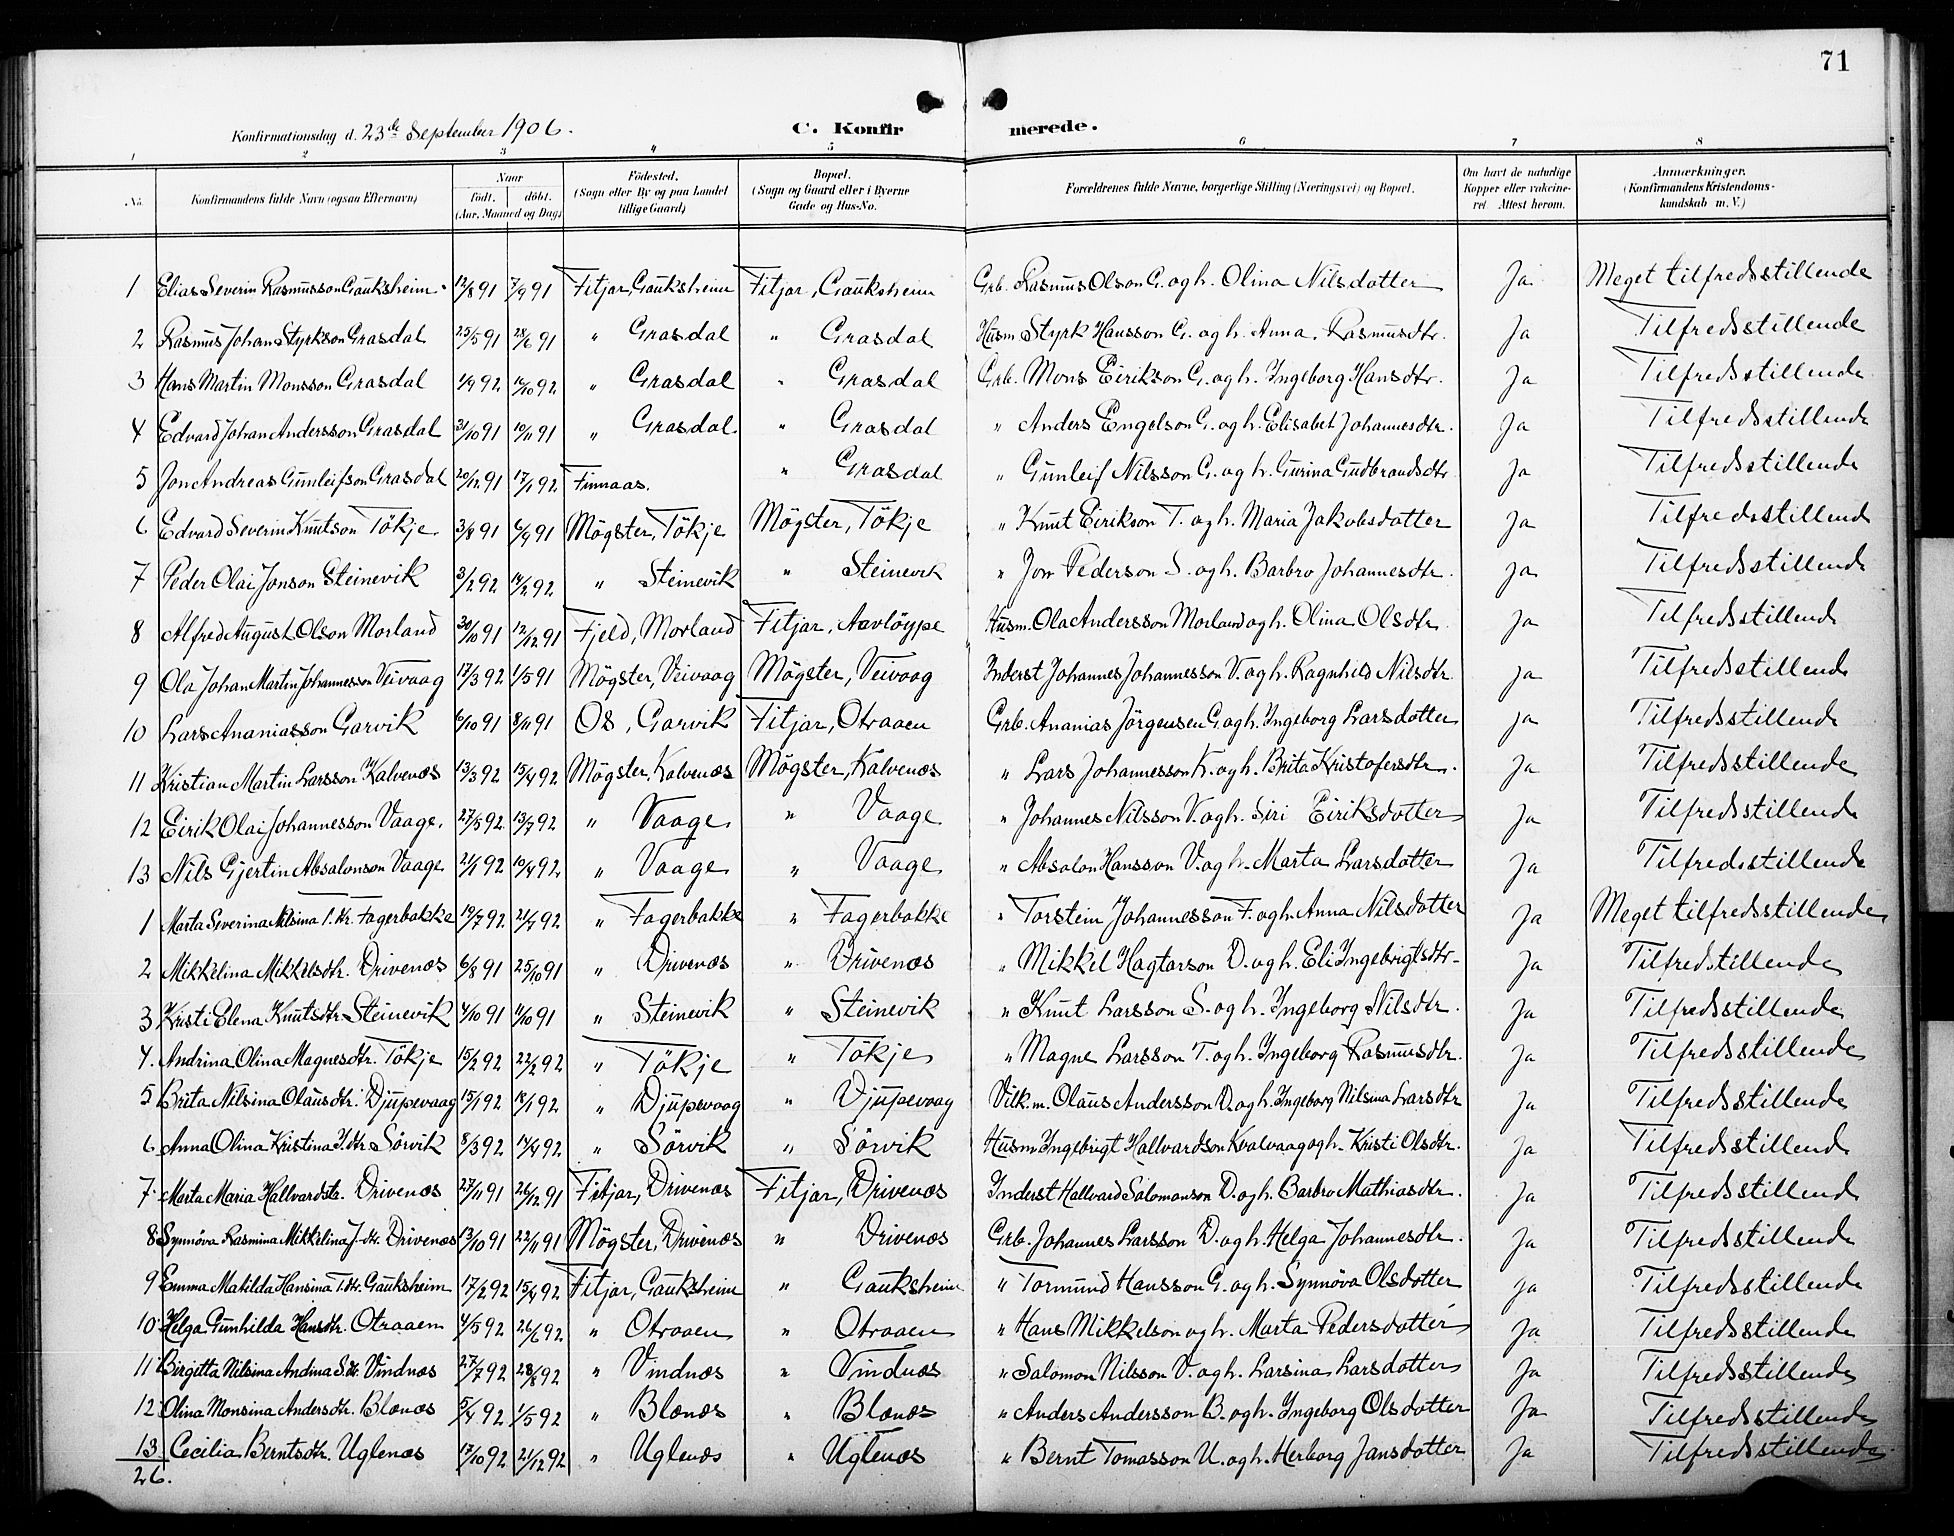 71
Konfirmationsdag d. 23de September 1906. C. Konfirmerede.
1 2 3 4 5 6 7 8
No. Konfirmandens fulde Navn (ogsaa Efternavn) Naar født. døbt. (Aar, Maaned og Dag) Fødested. (Sogn eller By og paa Landet tillige Gaard) Bopæl. (Sogn og Gaard eller i Byerne Gade og Hus-No. Forældrenes fulde Navne, borgerlige Stilling (Næringsvei) og Bopæl. Om havt de naturlige Kopper eller vaccineret Attest herom. Anmærkninger. (Konfirmandens Kristendomskundskab m. V.)
1 Elias Severin Rasmusson Gauksheim 12/8 91 7/9 91 Fitjar, Gauksheim Fitjar, Gauksheim Grb. Rasmus Olson G. og h. Olina Nilsdotter Ja Meget tilfredsstillende
2 Rasmus Johan Styrkson Grasdal 25/5 91 28/6 91 " Grasdal " Grasdal Husm Styrk Hansson G. og h. Anna Rasmusdtr. Ja Tilfredsstillende
3 Hans Martin Monsson Grasdal 1/9 92 16/10 92 " Grasdal " Grasdal Grb. Mons Eirikson G. og h. Ingeborg Hansdtr. Ja Tilfredsstillende
4 Edvard Johan Andersson Grasdal 31/10 91 10/11 91 " Grasdal. " Grasdal " Anders Engelson G. og h. Elisabet Johannesdtr. Ja Tilfredsstillende
5 Jon Andreas Gunleifson Grasdal 20/12 91 17/1 92 Finnaas. " Grasdal " Gunleif Nilsson G. og h. Gurina Gudbrandsdtr Ja Tilfredsstillende
6 Edvard Severin Knutson Tökje 3/8 91 6/9 91 Mögster, Tökje Mögster, Tökje " Knut Eirikson T. og h. Maria Jakobsdotter Ja Tilfredsstillend
7 Peder Olai Jonson Steinevik 3/2 92 14/2 92 " Steinevik " Steinevik " Jon Pederson S. og h. Barbro Johannesdtr. Ja Tilfredsstillend
8 Alfred August Olson Morland 30/10 91 12/12 91 Fjeld, Morland Fitjar, Aavlöype Husm. Ola Andersson Morland og h. Olina Olsdtr. Ja Tilfredsstillend
9 Ola Johan Martin Johannesson Veivaag 17/3 92 1/5 91 Mögster, Veivaag Mögster, Veivaag Inderst Johannes Johannesson V. og h. Ragnhild Nilsdtr Ja Tilfredsstillende
10 Lars Ananiasson Garvik 6/10 91 8/11 91 Os, Garvik Fitjar, Otraaen Grb. Ananias Jörgensen G. og h. Ingeborg Larsdotter Ja Tilfredsstillende
11 Kristian Martin Larsson Kalvenæs 13/3 92 15/4 92 Mögster, Kalvenæs Mögster, Kalvenæs " Lars Johannesson K. og h. Brita Kristofersdtr. Ja Tilfredsstillende
12 Eirik Olai Johannesson Vaage. 27/5 92 13/7 92 " Vaage " Vaage " Johannes Nilsson V. og h. Siri Eiriksdotter Ja Tilfredsstillende
13 Nils Gjertin Absalonson Vaage 21/1 92 10/4 92 " Vaage " Vaage " Absalon Hansson V. og h. Marta Larsdotter Ja Tilfredsstillende
1 Marta Severina Nilsina T. dtr. Fagerbakke 19/7 92 21/9 92 " Fagerbakke " Fagerbakke " Torstein Johannesson F. og h. Anna Nilsdotter Ja Meget tilfredsstillende
2 Mikkelina Mikkelsdtr. Drivenæs 6/8 91 25/10 91 " Drivenæs " Drivenæs " Mikkel Hagtorson D. og h. Eli Ingebrigtsdtr. Ja Tilfredstillende
3 Kristi Elena Knutsdtr. Steinevik 4/10 91 11/10 91 " Steinevik " Steinevik " Knut Larsson S. og h. Ingeborg Nilsdtr. Ja Tilfredsstillende
4. Andrina Olina Magnesdtr. Tökje 15/2 92 22/2 92 " Tökje " Tökje " Magne Larsson T. og h. Ingeborg Rasmusdtr. Ja Tilfredsstillende
5 Brita Nilsina Olausdtr. Djupevaag 15/1 92 18/1 92 " Djupevaag " Djupevaag Vilk. m. Olaus Andersson D. og h. Ingeborg Nilsina Larsdtr Ja Tilfredsstillende
6 Anna Olina Kristina I. dtr Sörvik 8/3 92 14/4 92 " Sörvik " Sörvik Husm. Ingebrigt Hallvardson Kvalvaag og h. Kristi Olsdtr. Ja Tilfredsstillend
7. Marta Maria Hallvardstr. Drivenæs 27/11 91 26/12 91 Fitjar, Drivenæs Fitjar, Drivenæs Inderst Hallvard Salomonson D. og h. Barbro Mathiasdtr. Ja Tilfredsstillend
8 Synnöva Rasmina Mikkelina J. dtr. Drivenæs 13/10 91 22/11 91 Mögster, Drivenæs " Drivenæs Grb. Johannes Larsson D. og h. Helga Johannesdtr. Ja Tilfredsstillende
9 Emma Matilda Hansina T. dtr. Gauksheim 17/2 92 15/4 92 Fitjar, Gauksheim " Gauksheim " Tormund Hansson G. og h. Synnöva Olsdotter Ja Tilfredsstillende
10 Helga Gunhilda Hansdtr. Otraaen 4/5 92 26/6 92 " Otraaen " Otraaen " Hans Mikkelson og h. Marta Pedersdotter Ja Tilfredsstillende
11 Birgetta Nilsina Andina S. dtr. Vindnæs 27/7 92 28/8 92 " Vindnæs " Vindnæs " Salomon Nilsson V. og h. Larsina Larsdotter Ja Tilfredsstillende
12 Olina Monsina Andersdtr. Blænæs 5/4 92 1/5 92 " Blænæs " Blænæs " Anders Andersson B. og h. Ingeborg Olsdotter Ja Tilfredsstillende
13 Cecilia Berntsdtr. Uglenæs 17/10 92 21/12 92 " Uglenæs " Uglenæs " Bernt Tomasson U. og h. Herborg Jansdotter Ja Tilfredsstillende.
26.